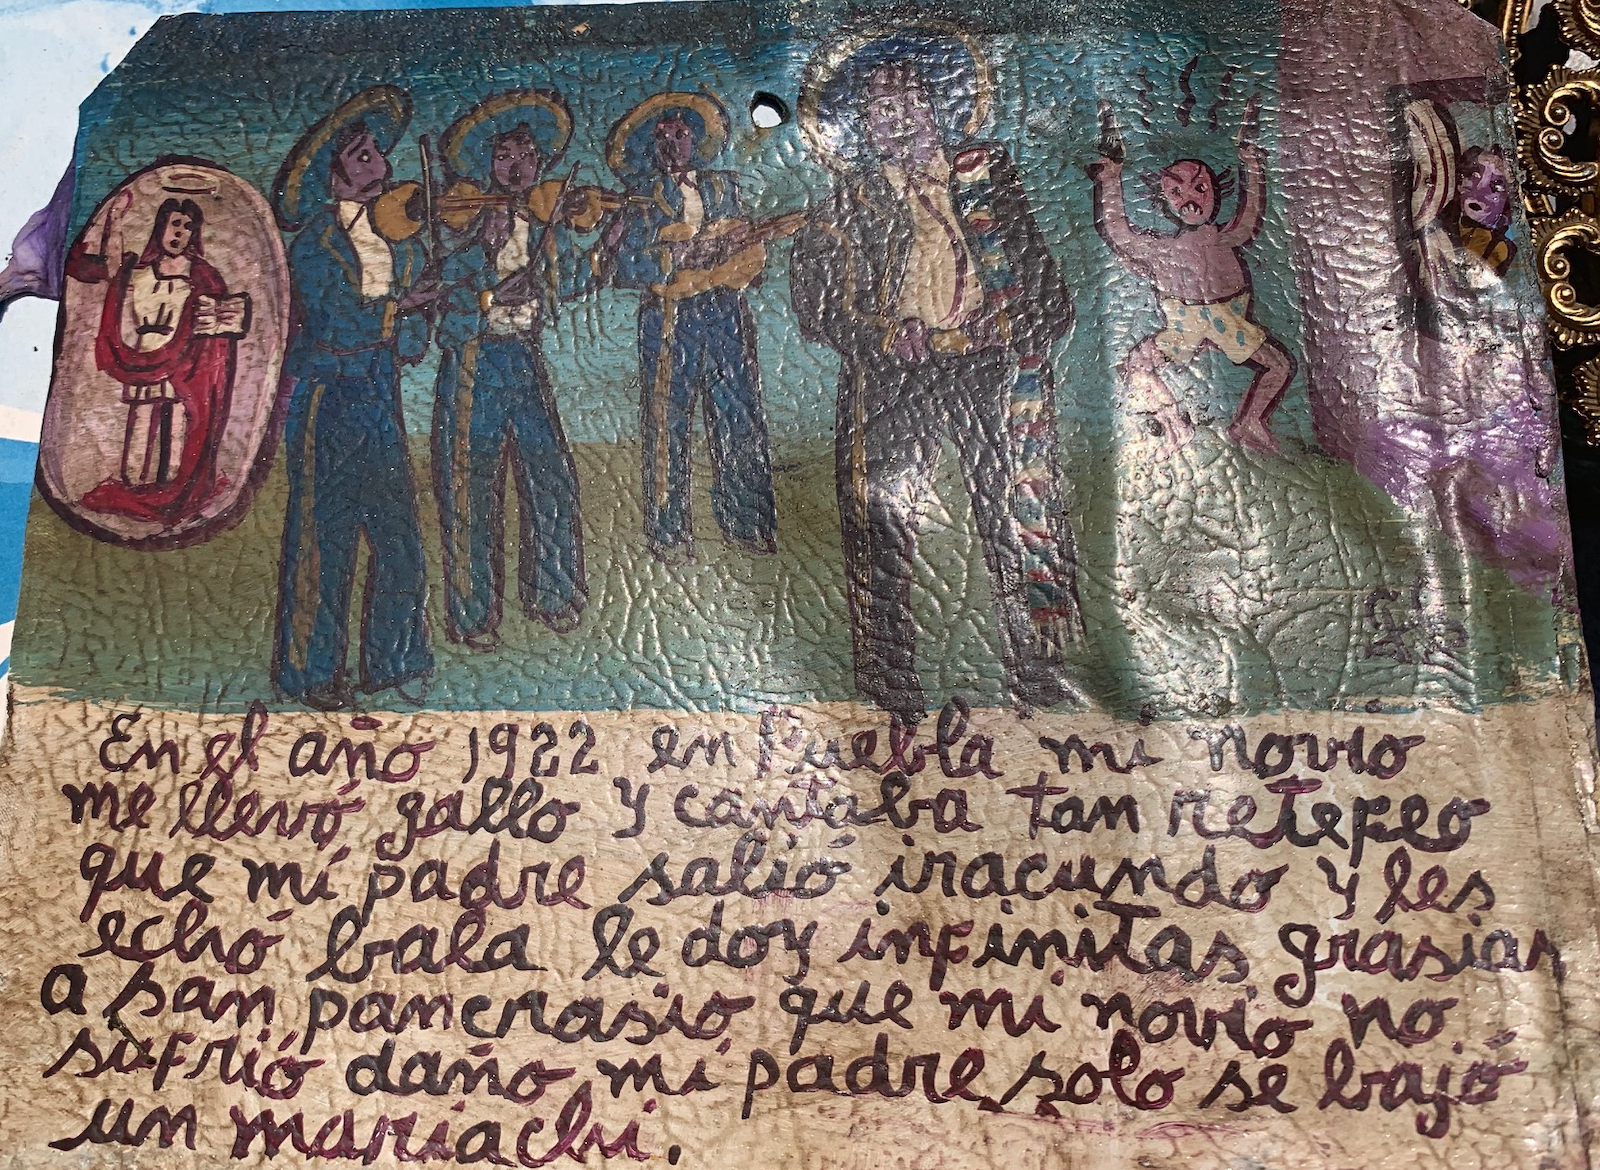 En el año 1922 en Puebla mi novio
me llevó gallo y cantaba tan retefeo
que mi padre salió iracundo y les
echó bala le doy infinitas grasias
a san pancrasio que mi novio no
sufrió daño mi padre solo se bajó
un mariachi.